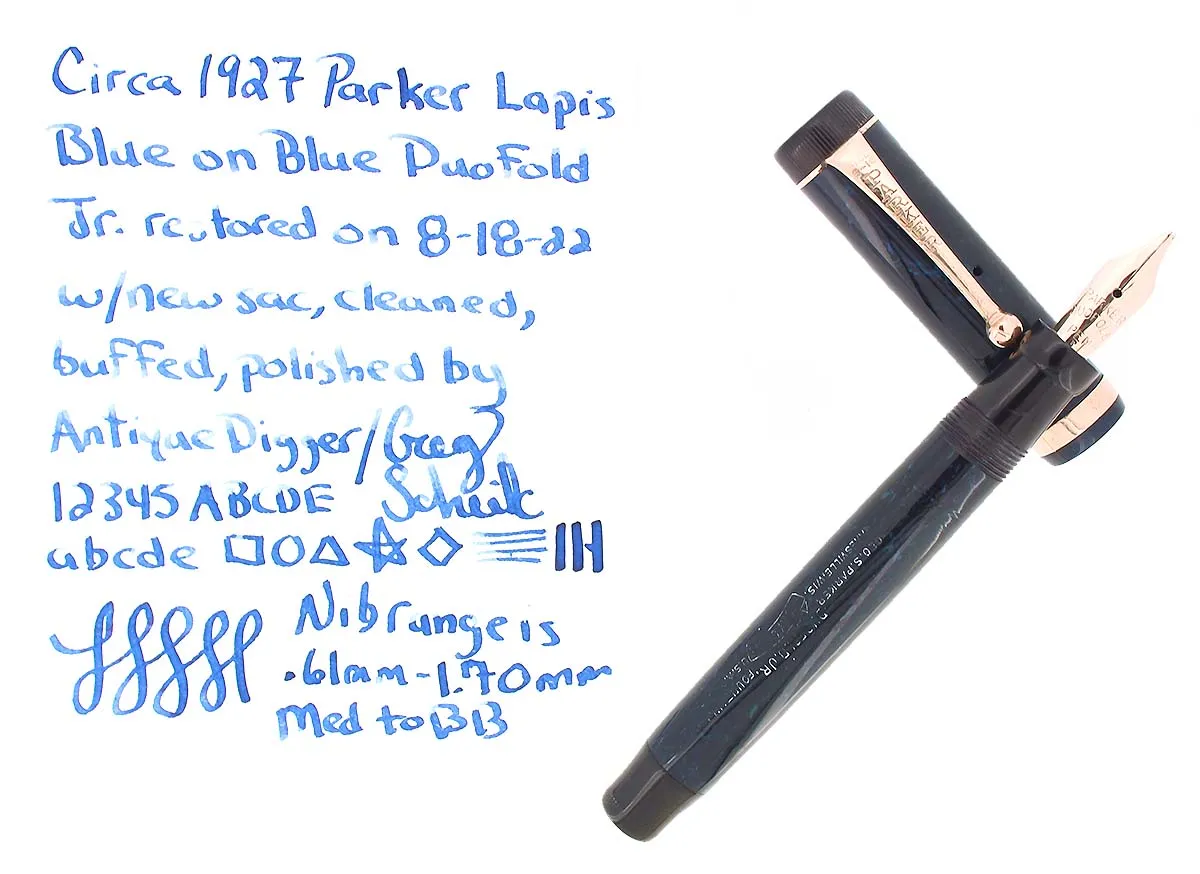 Circa 1927 Parker Lapis
Blue on Blue Duofold
Jr. restored on 8-18-22
w/new sac, cleaned,
buffed, polished by
Antique Digger/Greg
12345 ABCDE
abcde
Nib range is
.61mm-1.70mm
Med to BB
PARKER
PARKER
GEO. S. PARKER
JANESVILLE, WIS.
JR.
U.S.A.